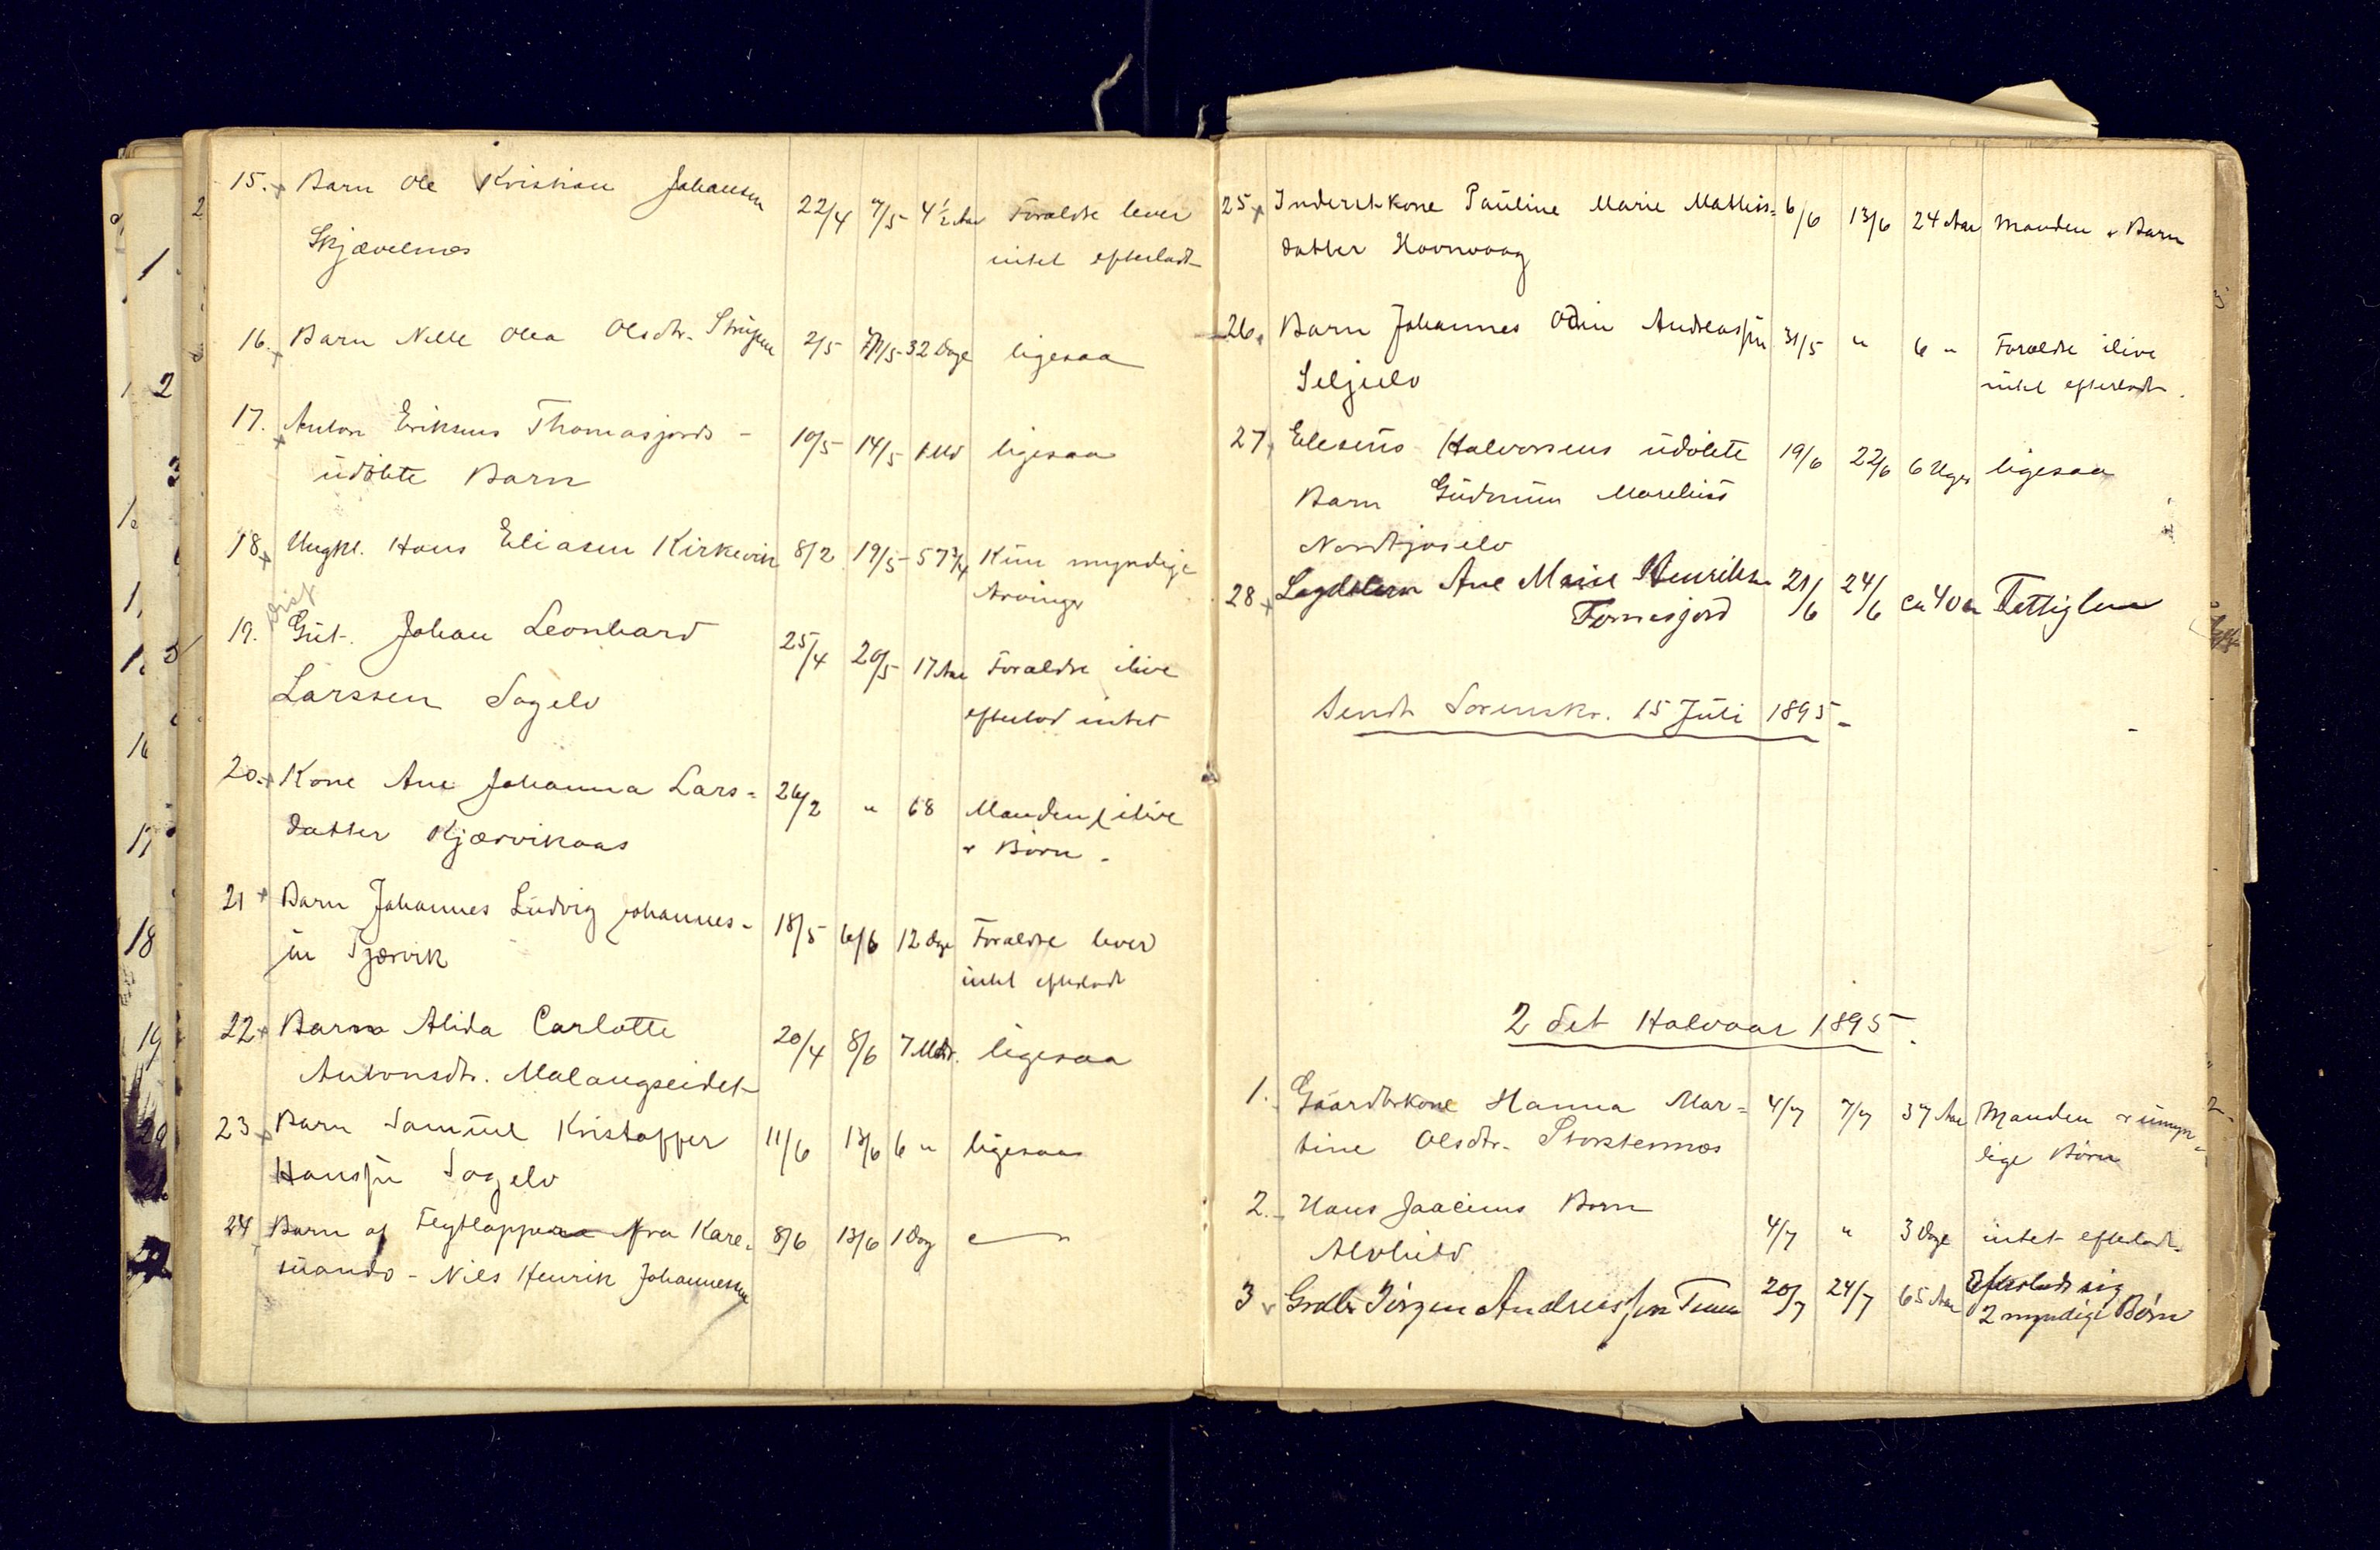 15. Barn Ole Kristian Johansen 22/4 7/5 4½ Aar Forældre lever
Skjævelnes intet efterladt
16. Barn Nelle Olea Olsdtr. 2/5 32 Dage ligesaa
17. Anton Eriksens Thomasjords - 10/5 14/5 1 Md ligesaa
udöbte Barn
18. Ungkl. Hans Eliasen Kirkevik 8/2 19/5 57¾ Kun myndige
Arvinger
19. Gut. Johan Leonhard 25/4 20/5 17 Aar Forældre ilive
Larssen Sagelv efterlod intet
20. Kone Ane Johanna Lars- 26/2 " 68 Manden ilive
datter Kjærvikaas & Börn.
21 Barn Johannes Ludvig Johannes- 18/5 6/6 12 Dage Forældre lever
sen Tjærvik intet efterladt
22. Barn Alida Carlotte 20/4 8/6 7 Mdr. ligesaa
Antonsdtr. Malangseidet
23. Barn Samuel Kristoffer 11/6 13/6 6 " ligesaa
Hanssen Sagelv
24 Barn af Flytlapper fra Kare- 8/6 13/6 1 Dag
suando - Niels Henrik Johannessen
25. Inderstkone Pauline Marie Mathis- 6/6 13/6 24 Aar Manden & Barn
datter Havnvaag
26. Barn Johannes Odin Andreassen 31/5 " 6 " Forældre ilive
Seljelv intet efterladt.
27. Eleseus Halvorsens udöbte 19/6 22/6 6 Uger ligesaa
Barn Gudrun Marelius
Nordkjoselv
28. Ane Marie Henriks 21/6 24/6 ca 40
Fornesjord
Sendt Sorenskr. 15 Juli 1895
2 det Halvaar 1895.
1. Gaardbrkone Hanna Mar- 4/7 7/7 37 Aar Manden & umyn-
tine Olsdtr. Storstennes dige Börn
2. Hans Joakims Barn
4/7 " 3 Dage intet efterladt
3 Grdbr Jörgen Andreassen 20/7 24/7 65 Aar Efterladt sig
2 myndige Börn